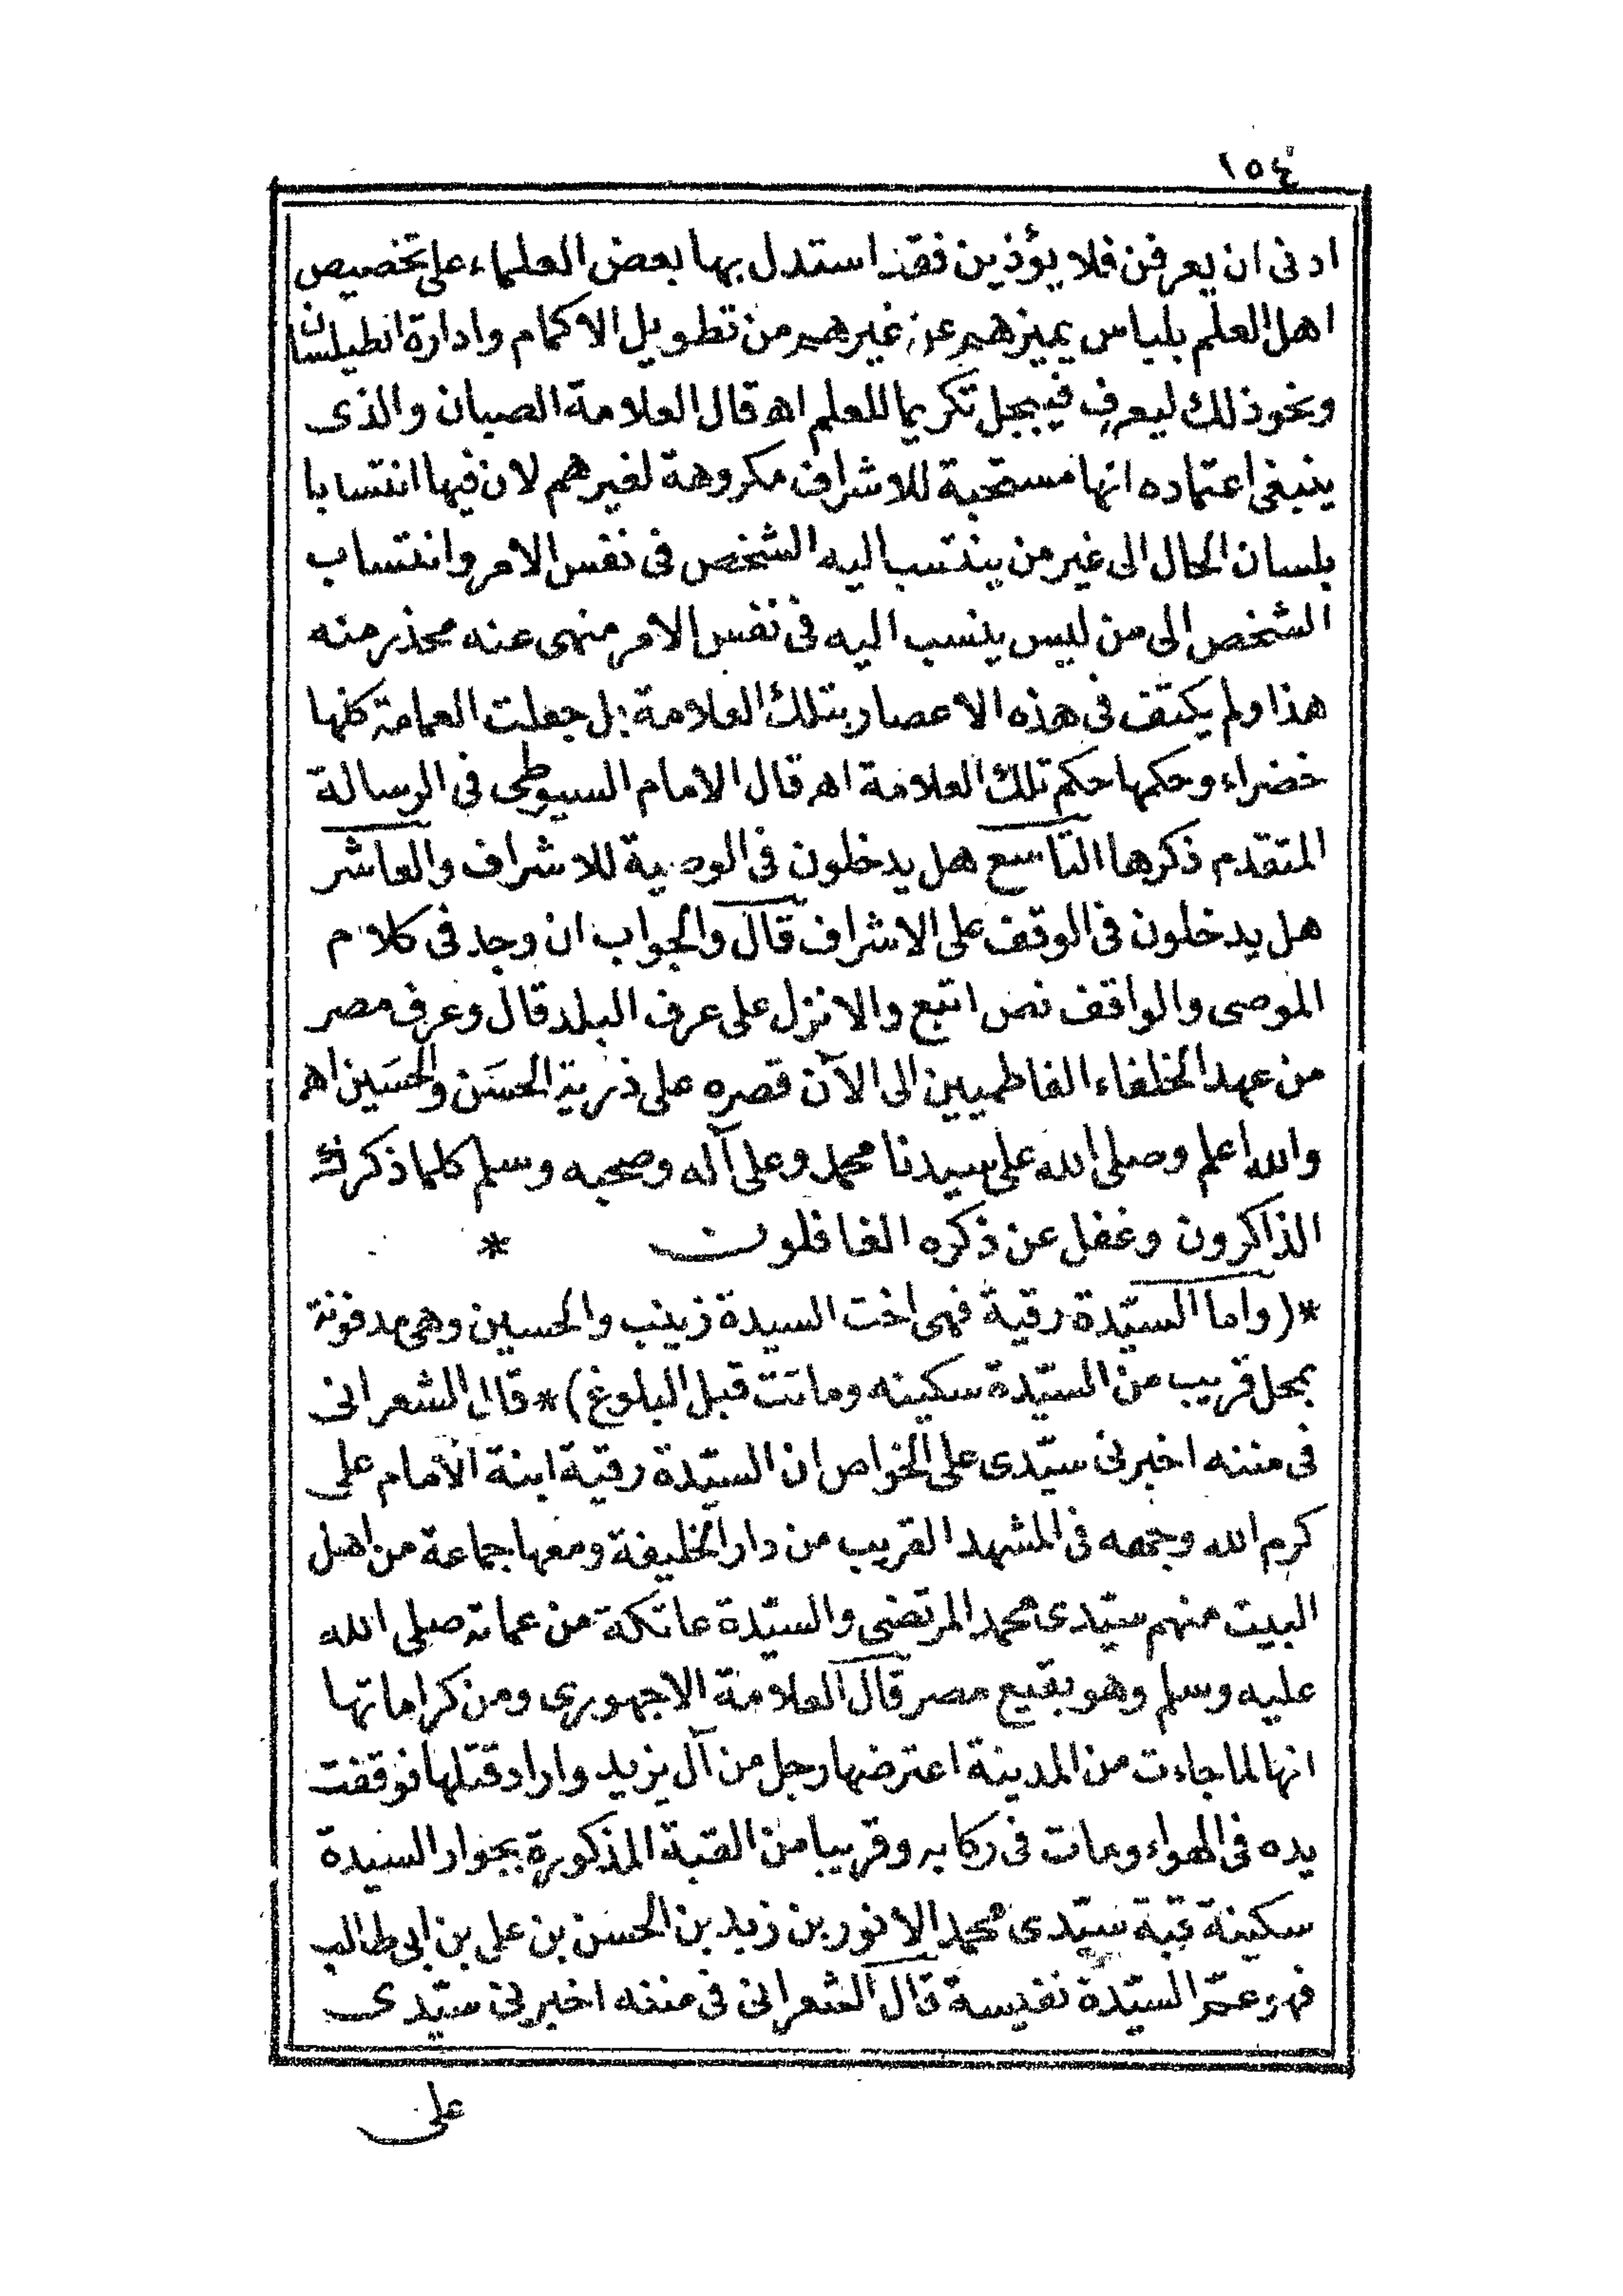 ١٥٤
ادنى ان يعرفن فلا يؤذين فقد استدل بها بعض العلماء على تخصيص
اهل العلم بلباس يميزهم عن غيرهم من تطويل الاكمام وادارة الطيلسان
ونحوذلك ليعرف فيبجل تكريما للعلم اه قال العلامة الصبان والذى
ينبغى اعتماده انها مستحبة للاشراف مكروهة لغيرهم لان فيها انتسابا
بلسان الحال الى غير من ينتسب اليه الشخص فى نفس الامر وانتساب
الشخص الى من ليس ينسب اليه فى نفس الامر منهى عنه محذر منه
هذا ولم يكتف فى هذه الاعصار بتلك العلامة بل جعلت العمامة كلها
خضراء وحكمها حكم تلك العلامة اه قال الامام السيوطى فى الرسالة
المتقدم ذكرها التاسع هل يدخلون فى الوصية للاشراف والعاشر
هل يدخلون فى الوقف على الاشراف قال والجواب ان وجد فى كلام
الموصى والواقف نص اتبع والانزل على عرف البلد قال وعرف مصر
من عهد الخلفاء الفاطميين الى الآن قصره على ذرية الحسَن والحسَين اه
والله اعلم وصلى الله على سيدنا محمد وعلى آله وصحبه وسلم كلما ذكرك
الذاكرون وغفل عن ذكره الغافلون *
*(واما السيّدة رقية فهى اخت السيدة زينب والحسين وهى مدفونة
بمحل قريب من السيّدة سكينه وماتت قبل البلوغ)* قال الشعرانى
فى مننه اخبرنى سيّدى على الخواص ان السيّدة رقية ابنة الامام على
كرم الله وجهه فى المشهد القريب من دار الخليفة ومعها جماعة من اهل
البيت منهم سيّدى محمد المرتضى والسيّدة عاتكة من عماته صلى الله
عليه وسلم وهو بقيع مصر قال العلامة الاجهورى ومن كراماتها
انها لما جاءت من المدينة اعترضها رجل من آل يزيد واراد قتلها فوقفت
يده فى الهواء ومات فى ركابه وقريبا من القبة المذكورة بجوار السيدة
سكينة قبة سيّدى محمد الانور بن زيد بن الحسن بن على بن ابى طالب
فهو عمّ السيّدة نفيسة قال الشعرانى فى مننه اخبرنى سيّدى
على